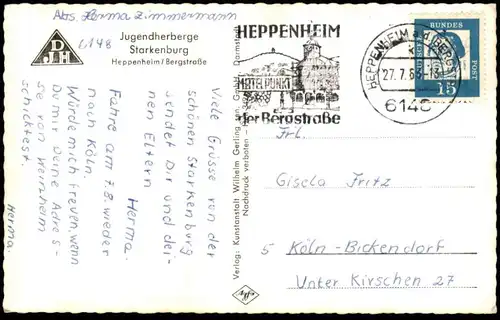 Abs. Herma Zimmermann
6148
D
J H
Jugendherberge
Starkenburg
Heppenheim/Bergstraße
Viele Grüsse von der
schönen Starkenburg
sendet Dir und dei-
nen Eltern
Herma.
Fahre am 7.8. wieder
nach Köln.
Würde mich freuen, wenn
Du mir Deine Adres-
se von Weinheim
schicktest.
Herma.
Verlag: Kunstanstalt Wilhelm Gerling GmbH, Darmstadt
Nachdruck verboten
HEPPENHEIM
MITTELPUNKT
der Bergstraße
HEPPENHEIM a.d. BERGSTR
27.7.63-13
6148
DEUTSCHE BUNDESPOST
15
Frl.
Gisela Fritz
5 Köln-Bickendorf
Unter Kirschen 27